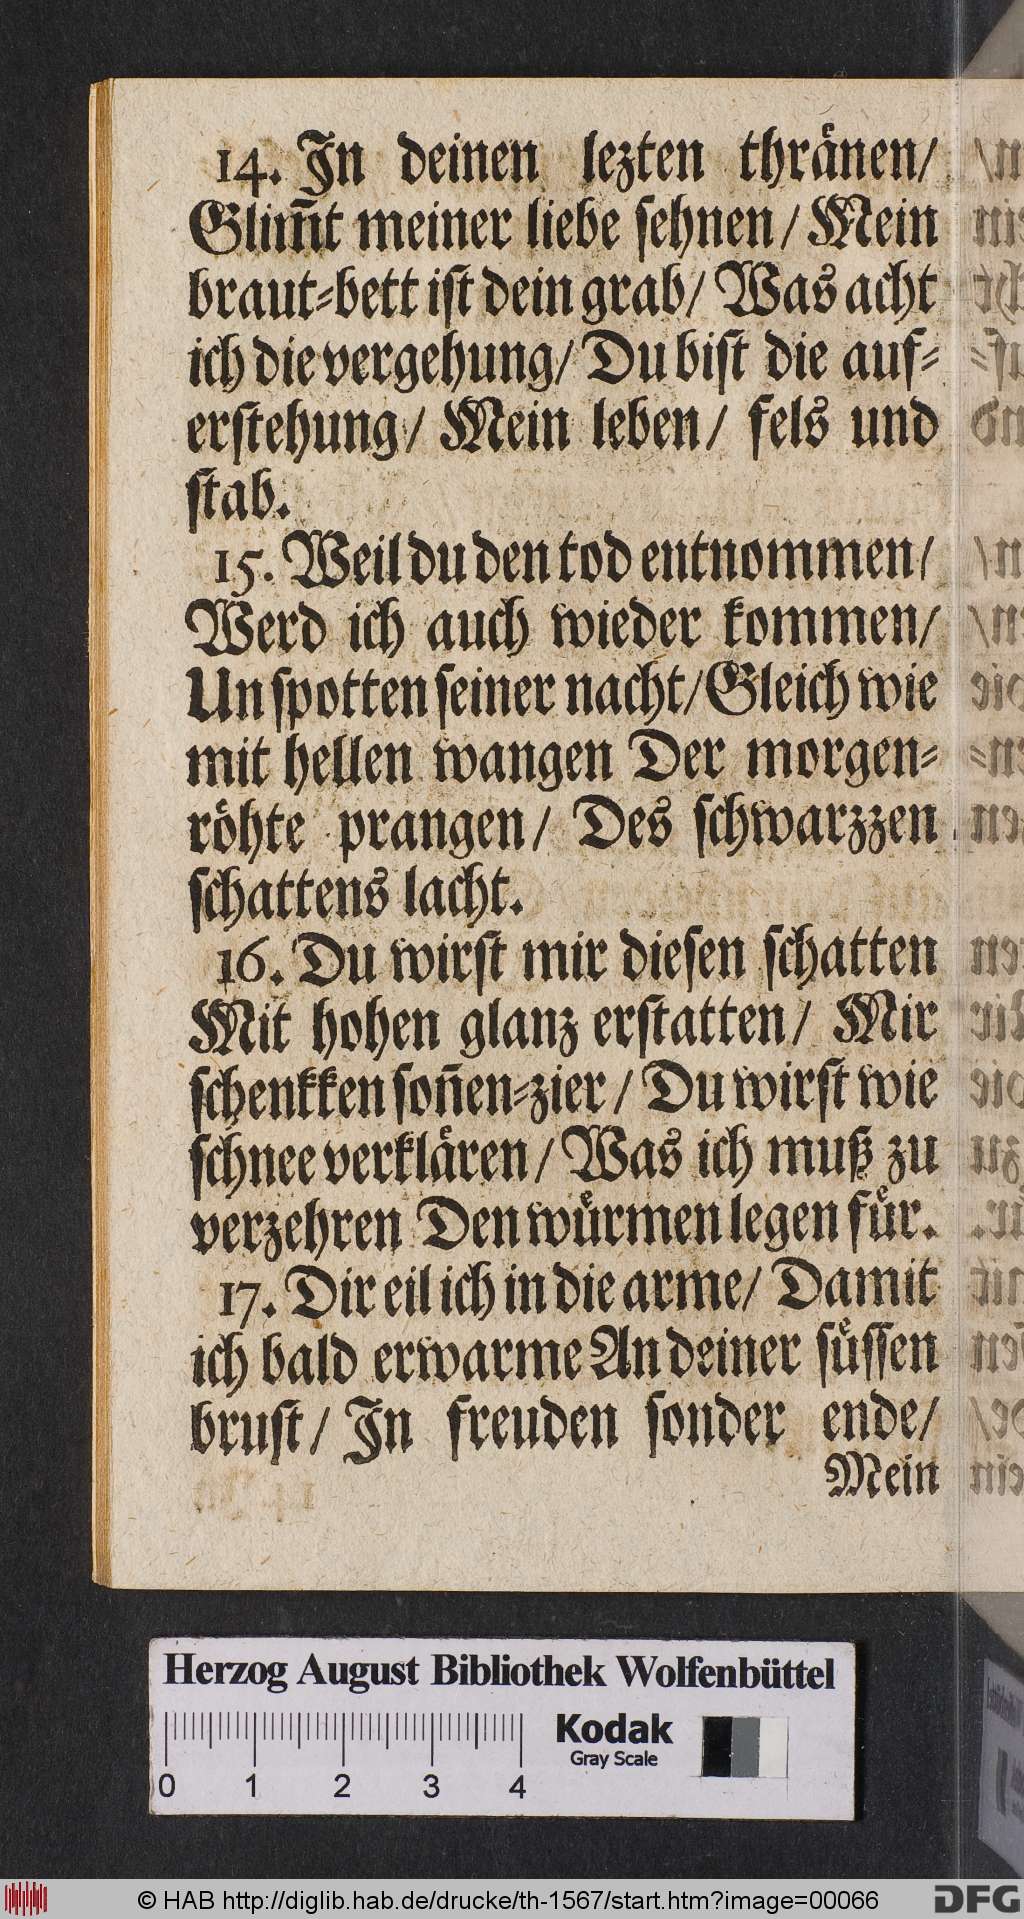 14. In deinen lezten thrånen/
Glim̃t meiner liebe sehnen/ Mein
braut-bett ist dein grab/ Was acht
ich die vergehung/ Du bist die auf-
erstehung/ Mein leben/ fels und
stab.
15. Weil du den tod entnommen/
Werd ich auch wieder kommen/
Un spotten seiner nacht/ Gleich wie
mit hellen wangen Der morgen-
röhte prangen/ Des schwarzzen
schattens lacht.
16. Du wirst mir diesen schatten
Mit hohen glanz erstatten/ Mir
schenkken son̄en-zier/ Du wirst wie
schnee verklären/ Was ich muß zu
verzehren Den würmen legen für.
17. Dir eil ich in die arme/ Damit
ich bald erwarme An deiner süssen
brust/ In freuden sonder ende/
Mein
Herzog August Bibliothek Wolfenbüttel
Kodak
Gray Scale
0 1 2 3 4
© HAB http://diglib.hab.de/drucke/th-1567/start.htm?image=00066
DFG